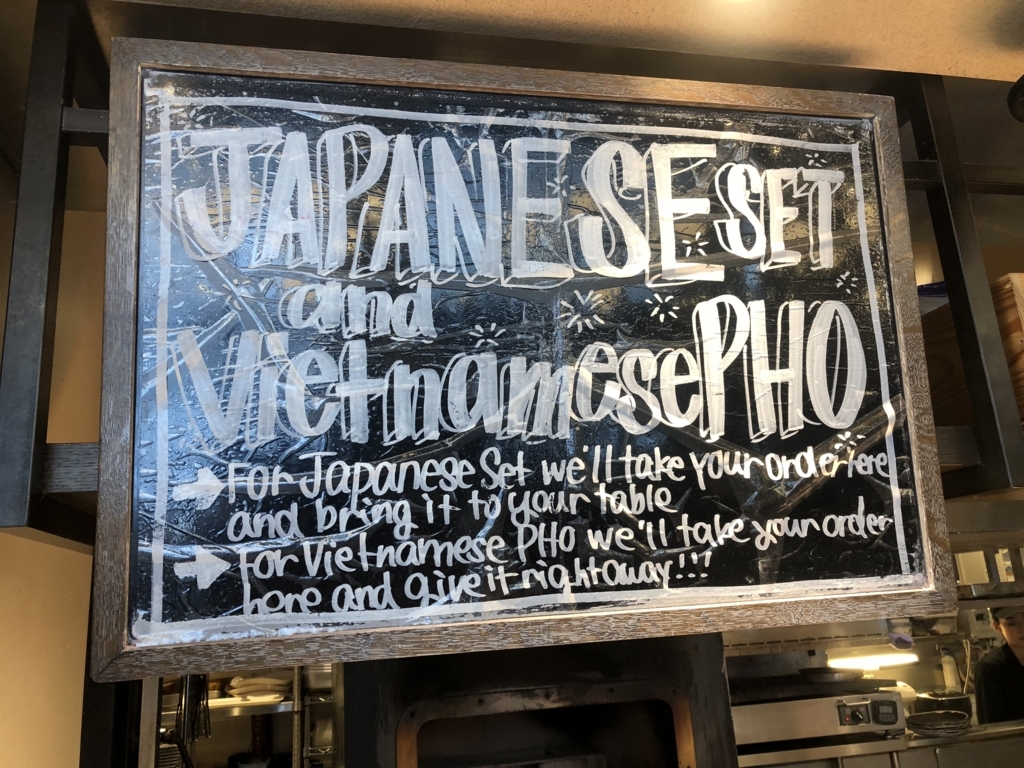 JAPANESE SET
and
Vietnamese PHO
→ For Japanese Set we'll take your order here
and bring it to your table
→ For Vietnamese PHO we'll take your order
here and give it right away!!!